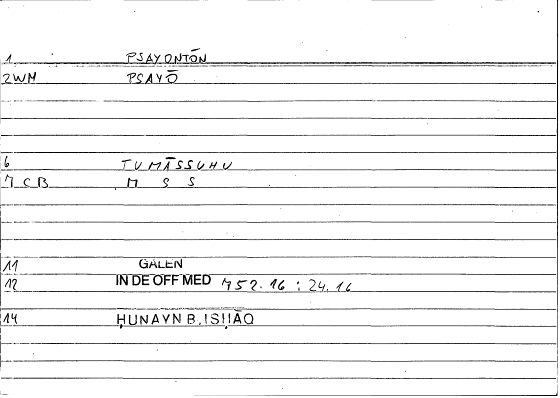 1 PSAYONTŌN
2WM PSAYŌ
6 TUMĀSSUHU
7 CB M S S
11 GALEN
12 IN DE OFF MED 752.16 : 24.16
14 ḤUNAYN B. ISḤĀQ